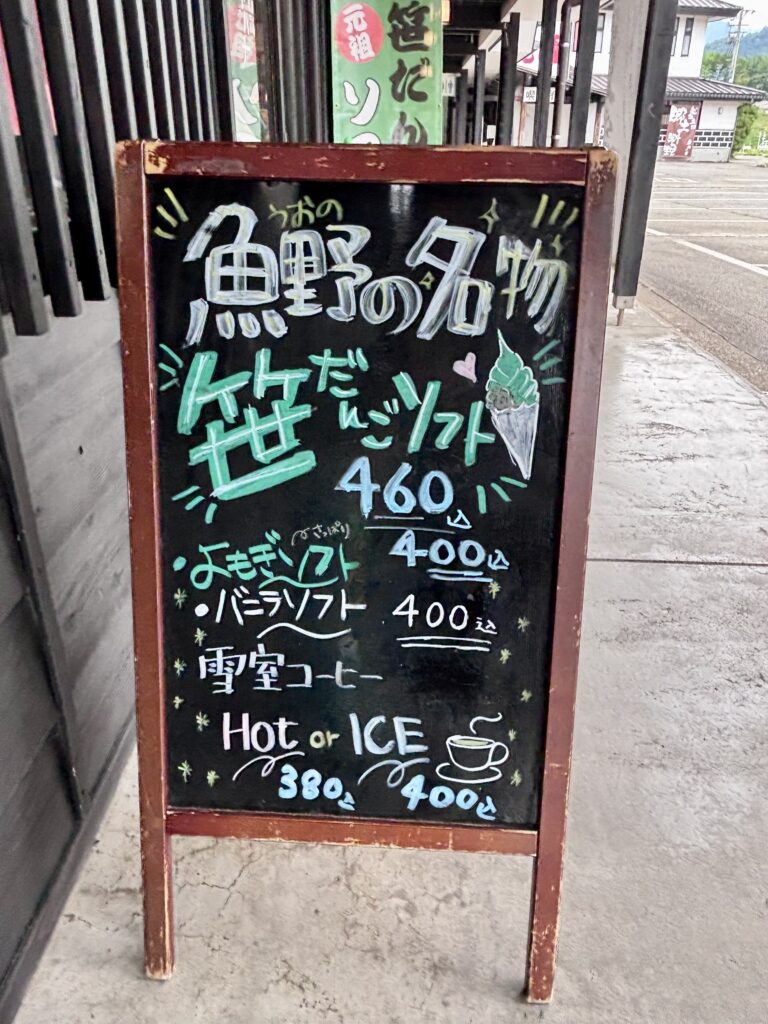 元祖
笹だん
ソフ
うおの
魚野の名物
笹だんごソフト
460込
さっぱり
・よもぎソフト 400込
・バニラソフト 400込
雪室コーヒー
Hot or ICE
380込 400込